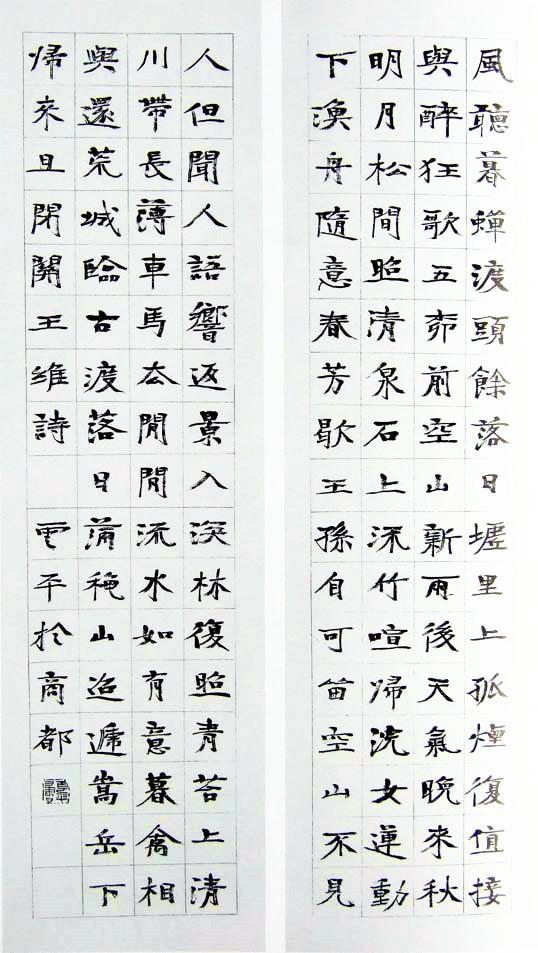 風聽暮蟬渡頭餘落日墟里上孤煙復值接
與醉狂歌五柳前空山新雨後天氣晚來秋
明月松間照清泉石上流竹喧歸浣女蓮動
下漁舟隨意春芳歇王孫自可留空山不見
人但聞人語響返景入深林復照青苔上清
川帶長薄車馬去閒閒流水如有意暮禽相
與還荒城臨古渡落日滿穐山迢遞嵩岳下
歸來且閉關王維詩 雲平於商都